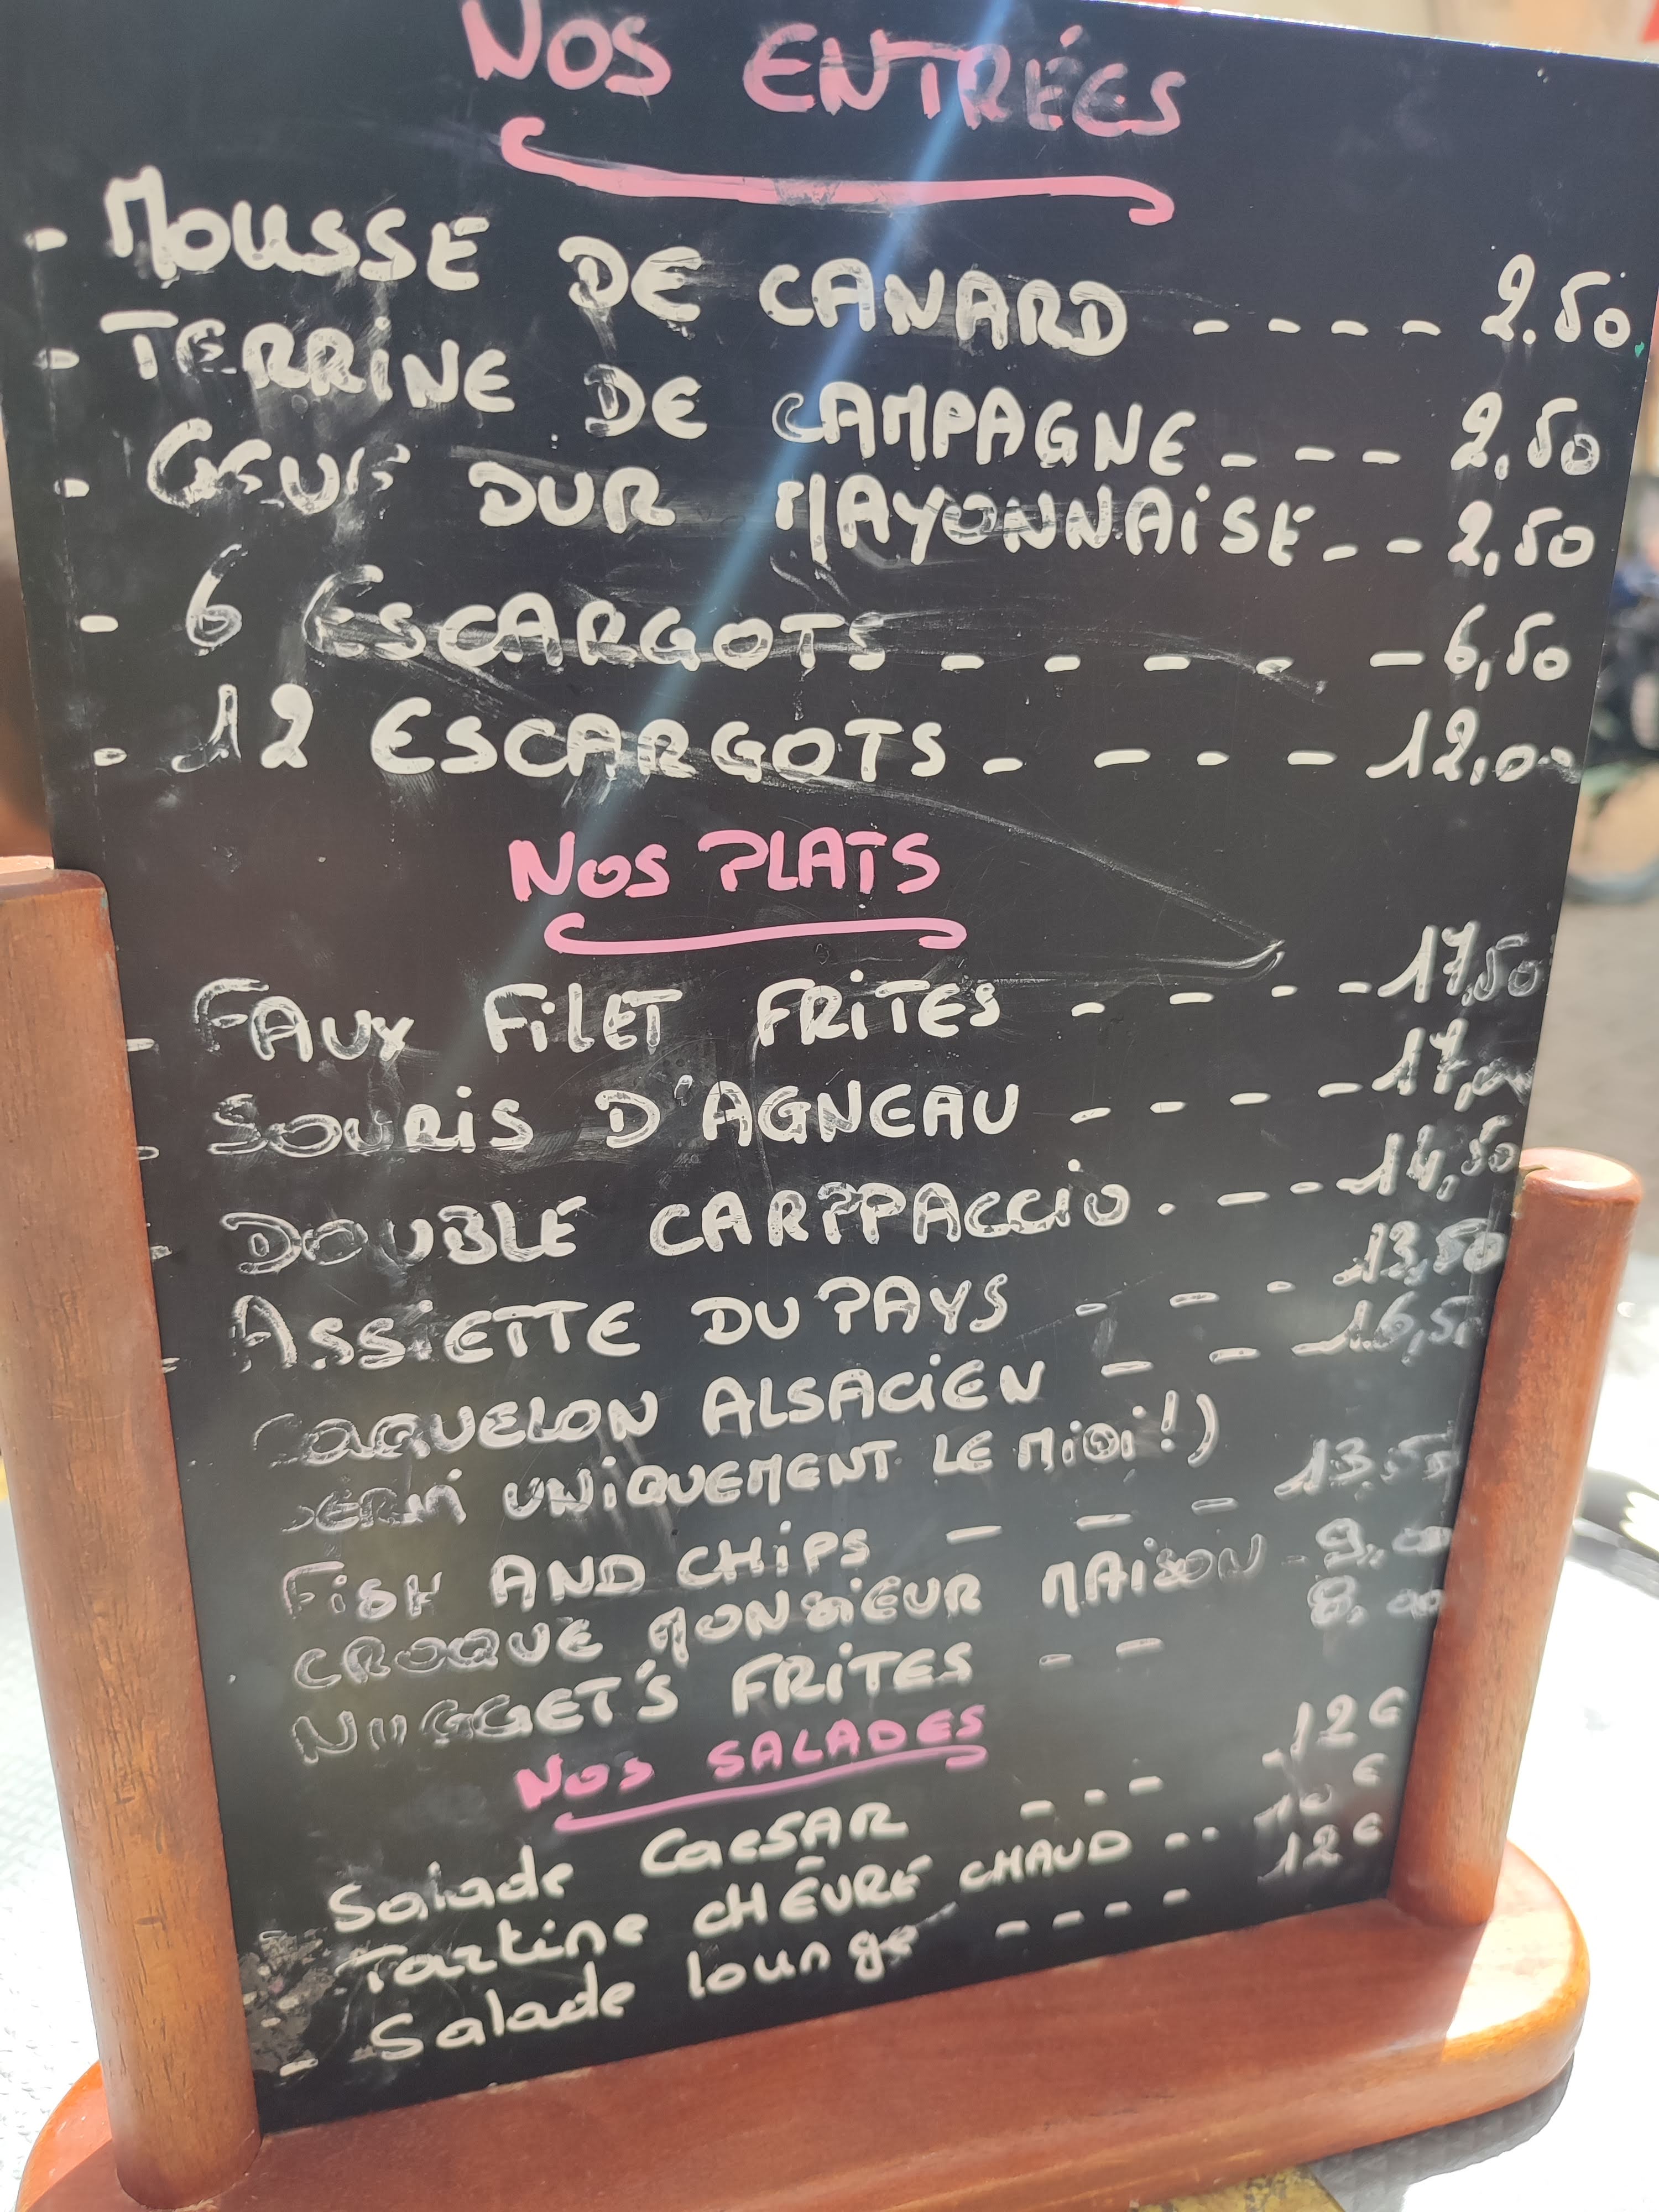 NOS ENTRÉES
- MOUSSE DE CANARD ---- 2.50
- TERRINE DE CAMPAGNE --- 2,50
- OEUF DUR MAYONNAISE -- 2,50
- 6 ESCARGOTS ----- 6,50
- 12 ESCARGOTS ---- 12,00
NOS PLATS
- FAUX FILET FRITES ---- 17,50
- SOURIS D'AGNEAU ---- 17,00
- DOUBLE CARPPACCIO . --- 14,50
- ASSIETTE DU PAYS --- 13,50
CAQUELON ALSACIEN --- 16,50
SERVI UNIQUEMENT LE MIDI !)
FISH AND CHIPS --- 13,50
CROQUE MONSIEUR MAISON - 9,00
NUGGET'S FRITES -- 8,00
NOS SALADES
Salade CAESAR --- 12€
Tartine CHÈVRE CHAUD -- 10 €
- Salade lounge ---- 12€